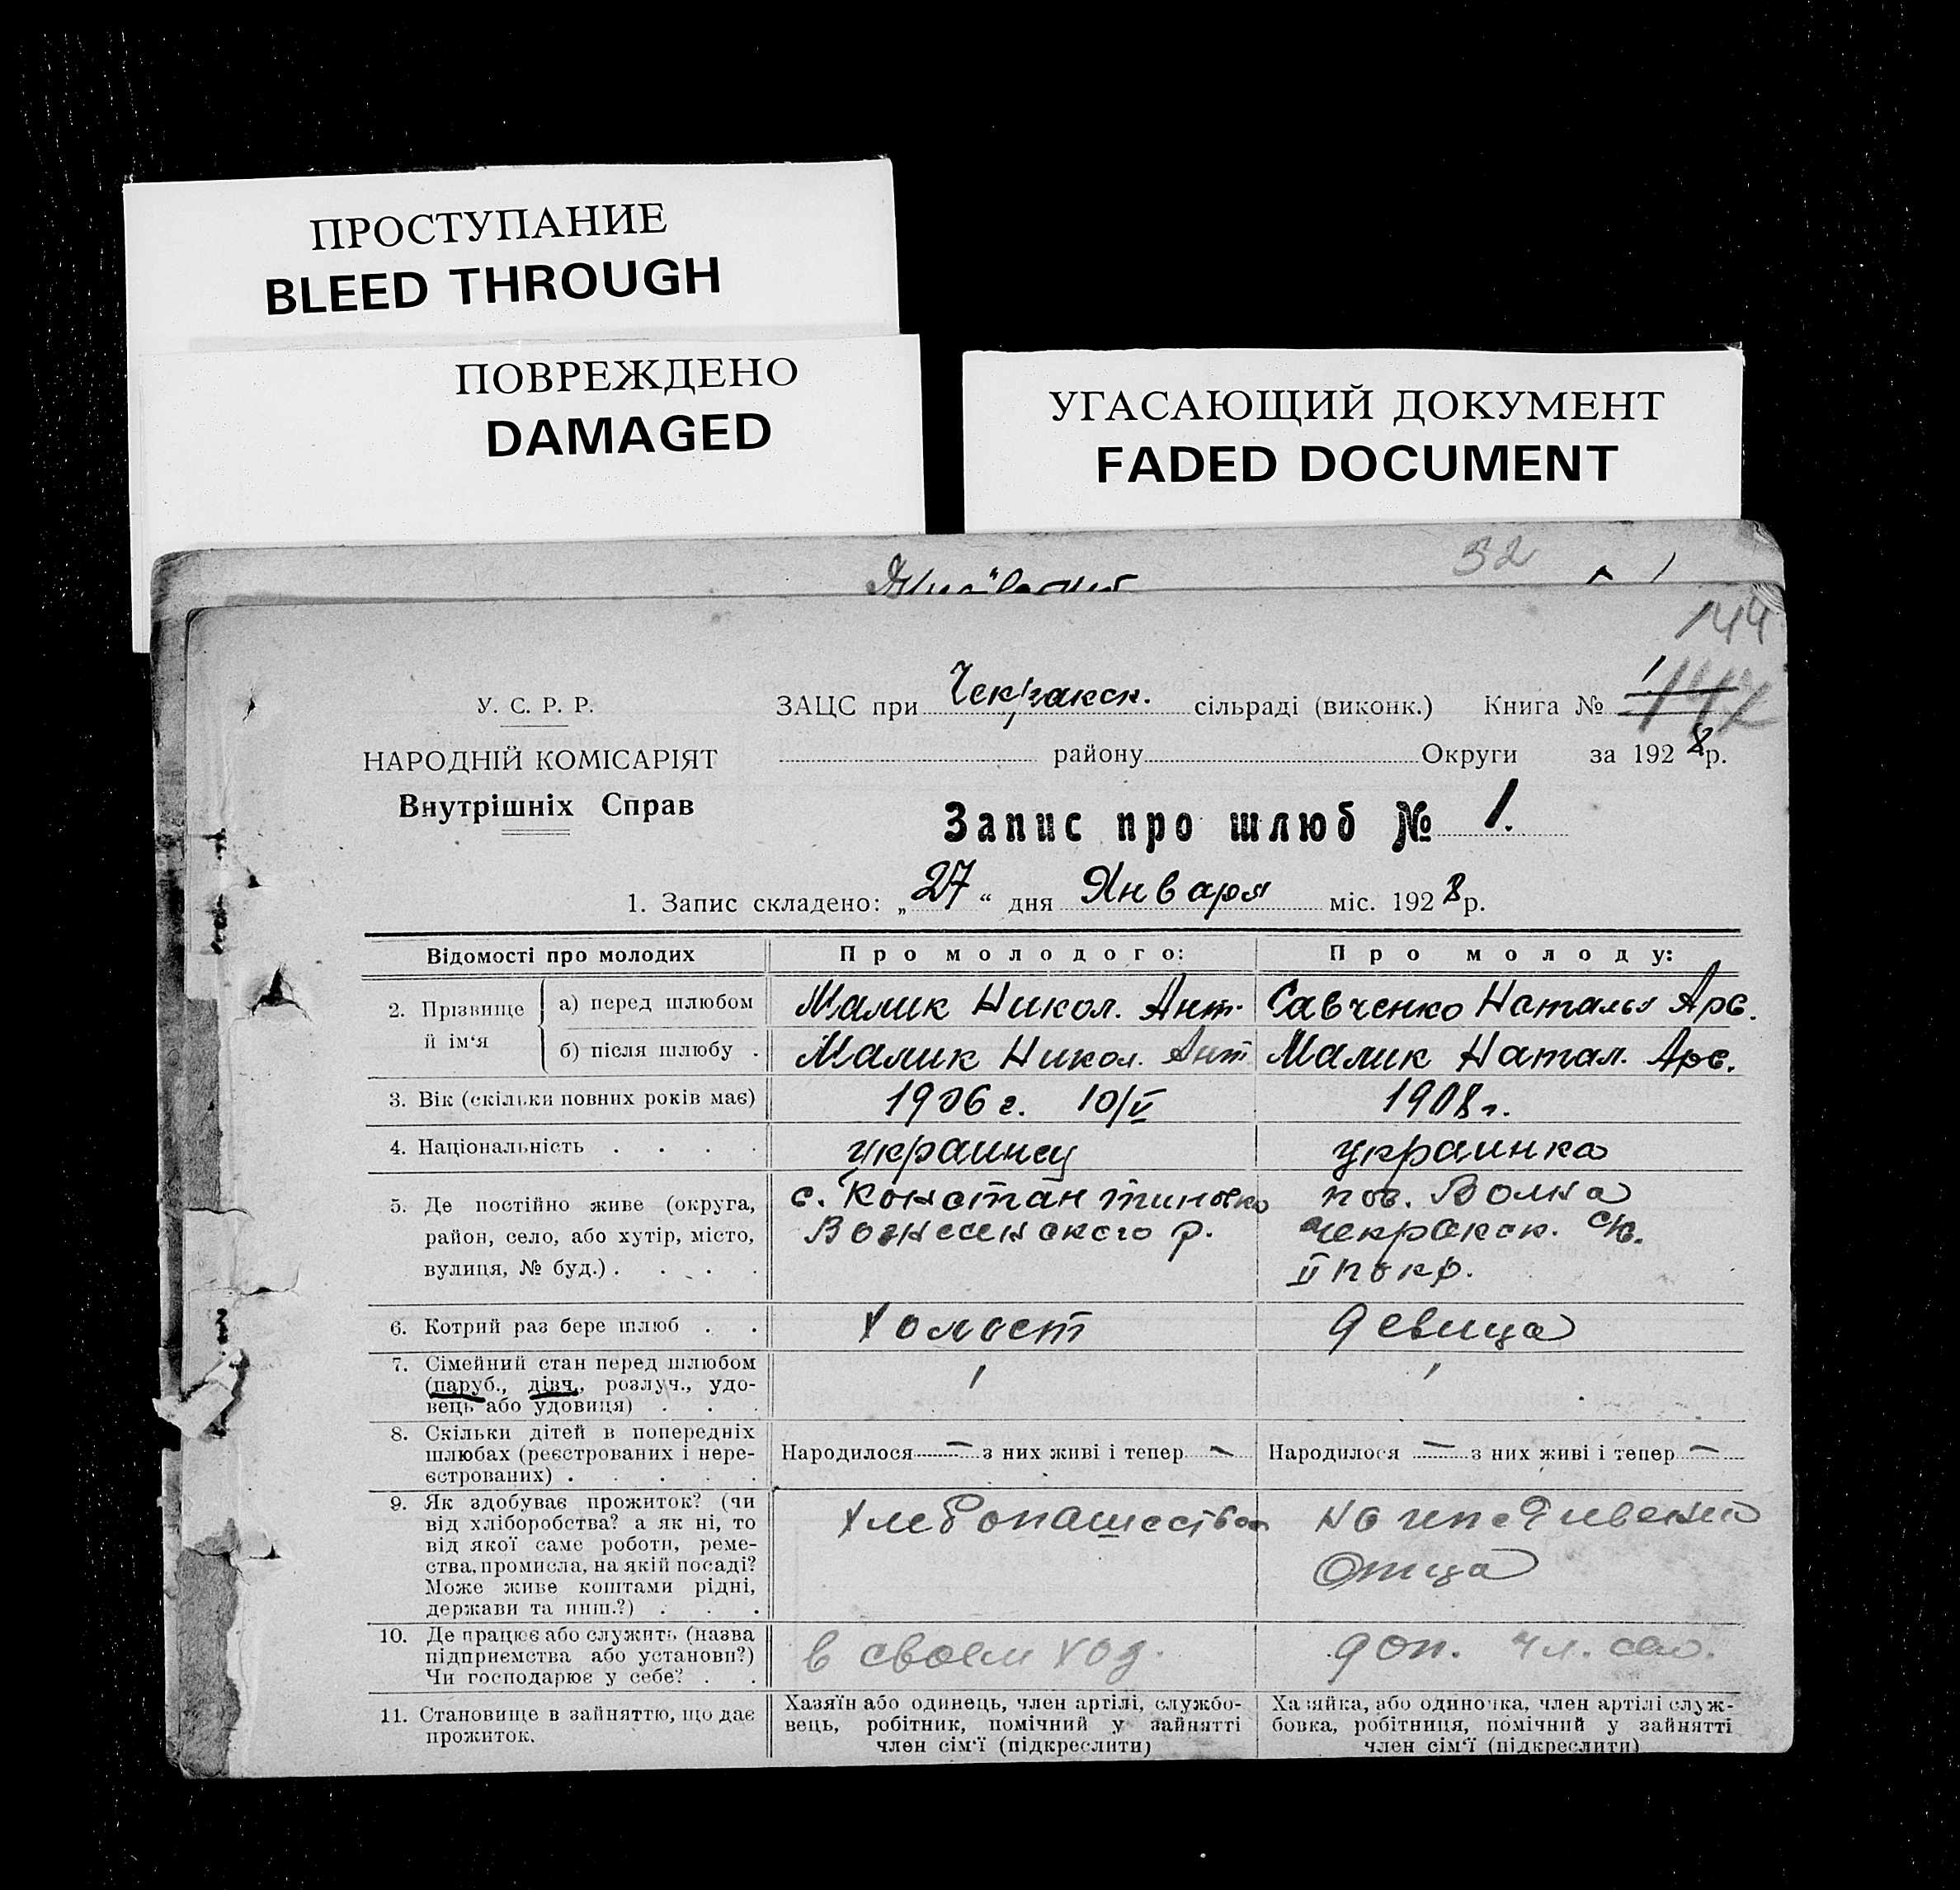 ПРОСТУПАНИЕ
BLEED THROUGH
ПОВРЕЖДЕНО
DAMAGED
УГАСАЮЩИЙ ДОКУМЕНТ
FADED DOCUMENT
52
144
У. С. Р. Р.
НАРОДНІЙ КОМІСАРІЯТ
Внутрішніх Справ
ЗАЦС при Чекракск. сільраді (виконк.) Книга № 1
району Округи за 1928 р.
Запис про шлюб № 1.
1. Запис складено: „27“ дня Января міс. 1928 р.
Відомості про молодих Про молодого: Про молоду:
2. Прізвище й ім‘я
а) перед шлюбом Малик Никол. Ант. Савченко Наталья Арс.
б) після шлюбу . Малик Никол. Ант Малик Натал. Арс.
3. Вік (скільки повних років має) 1906 г. 10/V 1908 г.
4. Національність . . . . украинец украинка
5. Де постійно живе (округа,
район, село, або хутір, місто,
вулиця, № буд.) . . . .
с. Константиновка
Вознесенского р.
пос. Волна
Чекракск. с/с.
II покр.
6. Котрий раз бере шлюб . . холост девица
7. Сімейний стан перед шлюбом
(паруб., дівч., розлуч., удо-
вець або удовиця) . . .
8. Скільки дітей в попередніх
шлюбах (реєстрованих і нере-
єстрованих) . . . . .
Народилося — з них живі і тепер —
Народилося — з них живі і тепер —
9. Як здобуває прожиток? (чи
від хліборобства? а як ні, то
від якої саме роботи, реме-
ства, промисла, на якій посаді?
Може живе коштами рідні,
держави та инш.?) . . .
Хлебопашество
На иждивении
Отца
10. Де працює або служить (назва
підприємства або установи?)
Чи господарює у себе? . .
в своем хоз.
доп. чл. сем.
11. Становище в зайняттю, що дає
прожиток.
Хазяїн або одинець, член артілі, службо-
вець, робітник, помічний у зайнятті
член сім‘ї (підкреслити)
Хазяйка, або одиночка, член артілі служ-
бовка, робітниця, помічний у зайнятті
член сім‘ї (підкреслити)